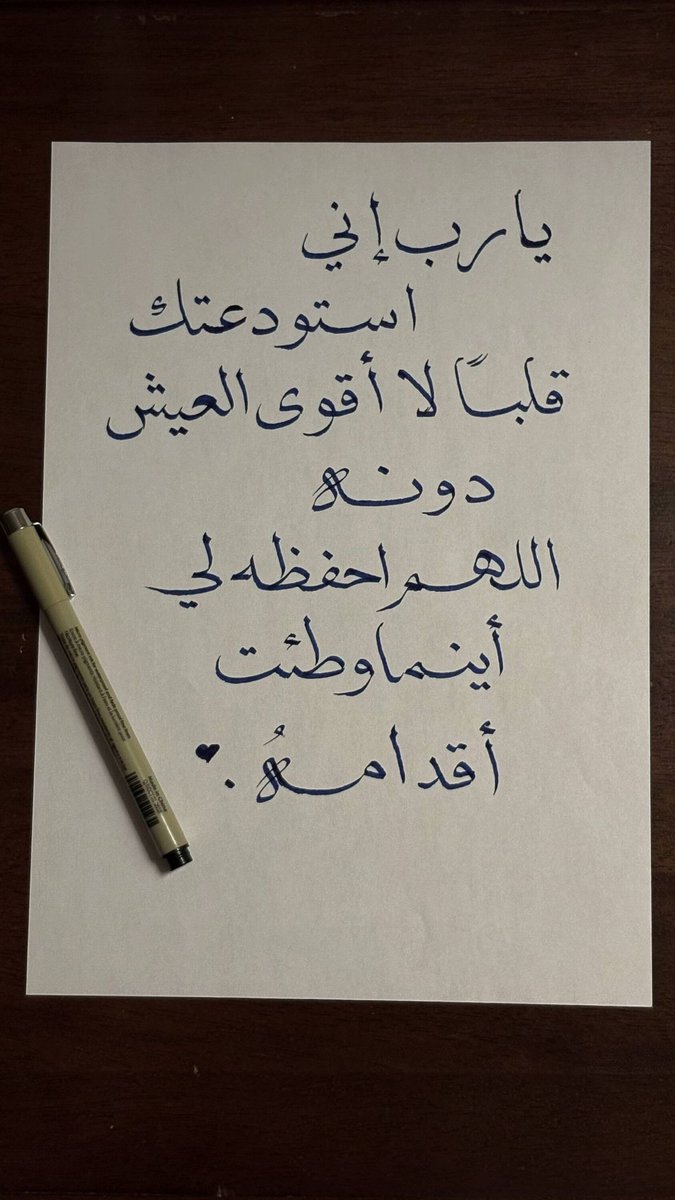 يا رب إني
استودعتك
قلبًا لا أقوى العيش
دونه
اللهم احفظه لي
أينما وطئت
أقدامهُ .